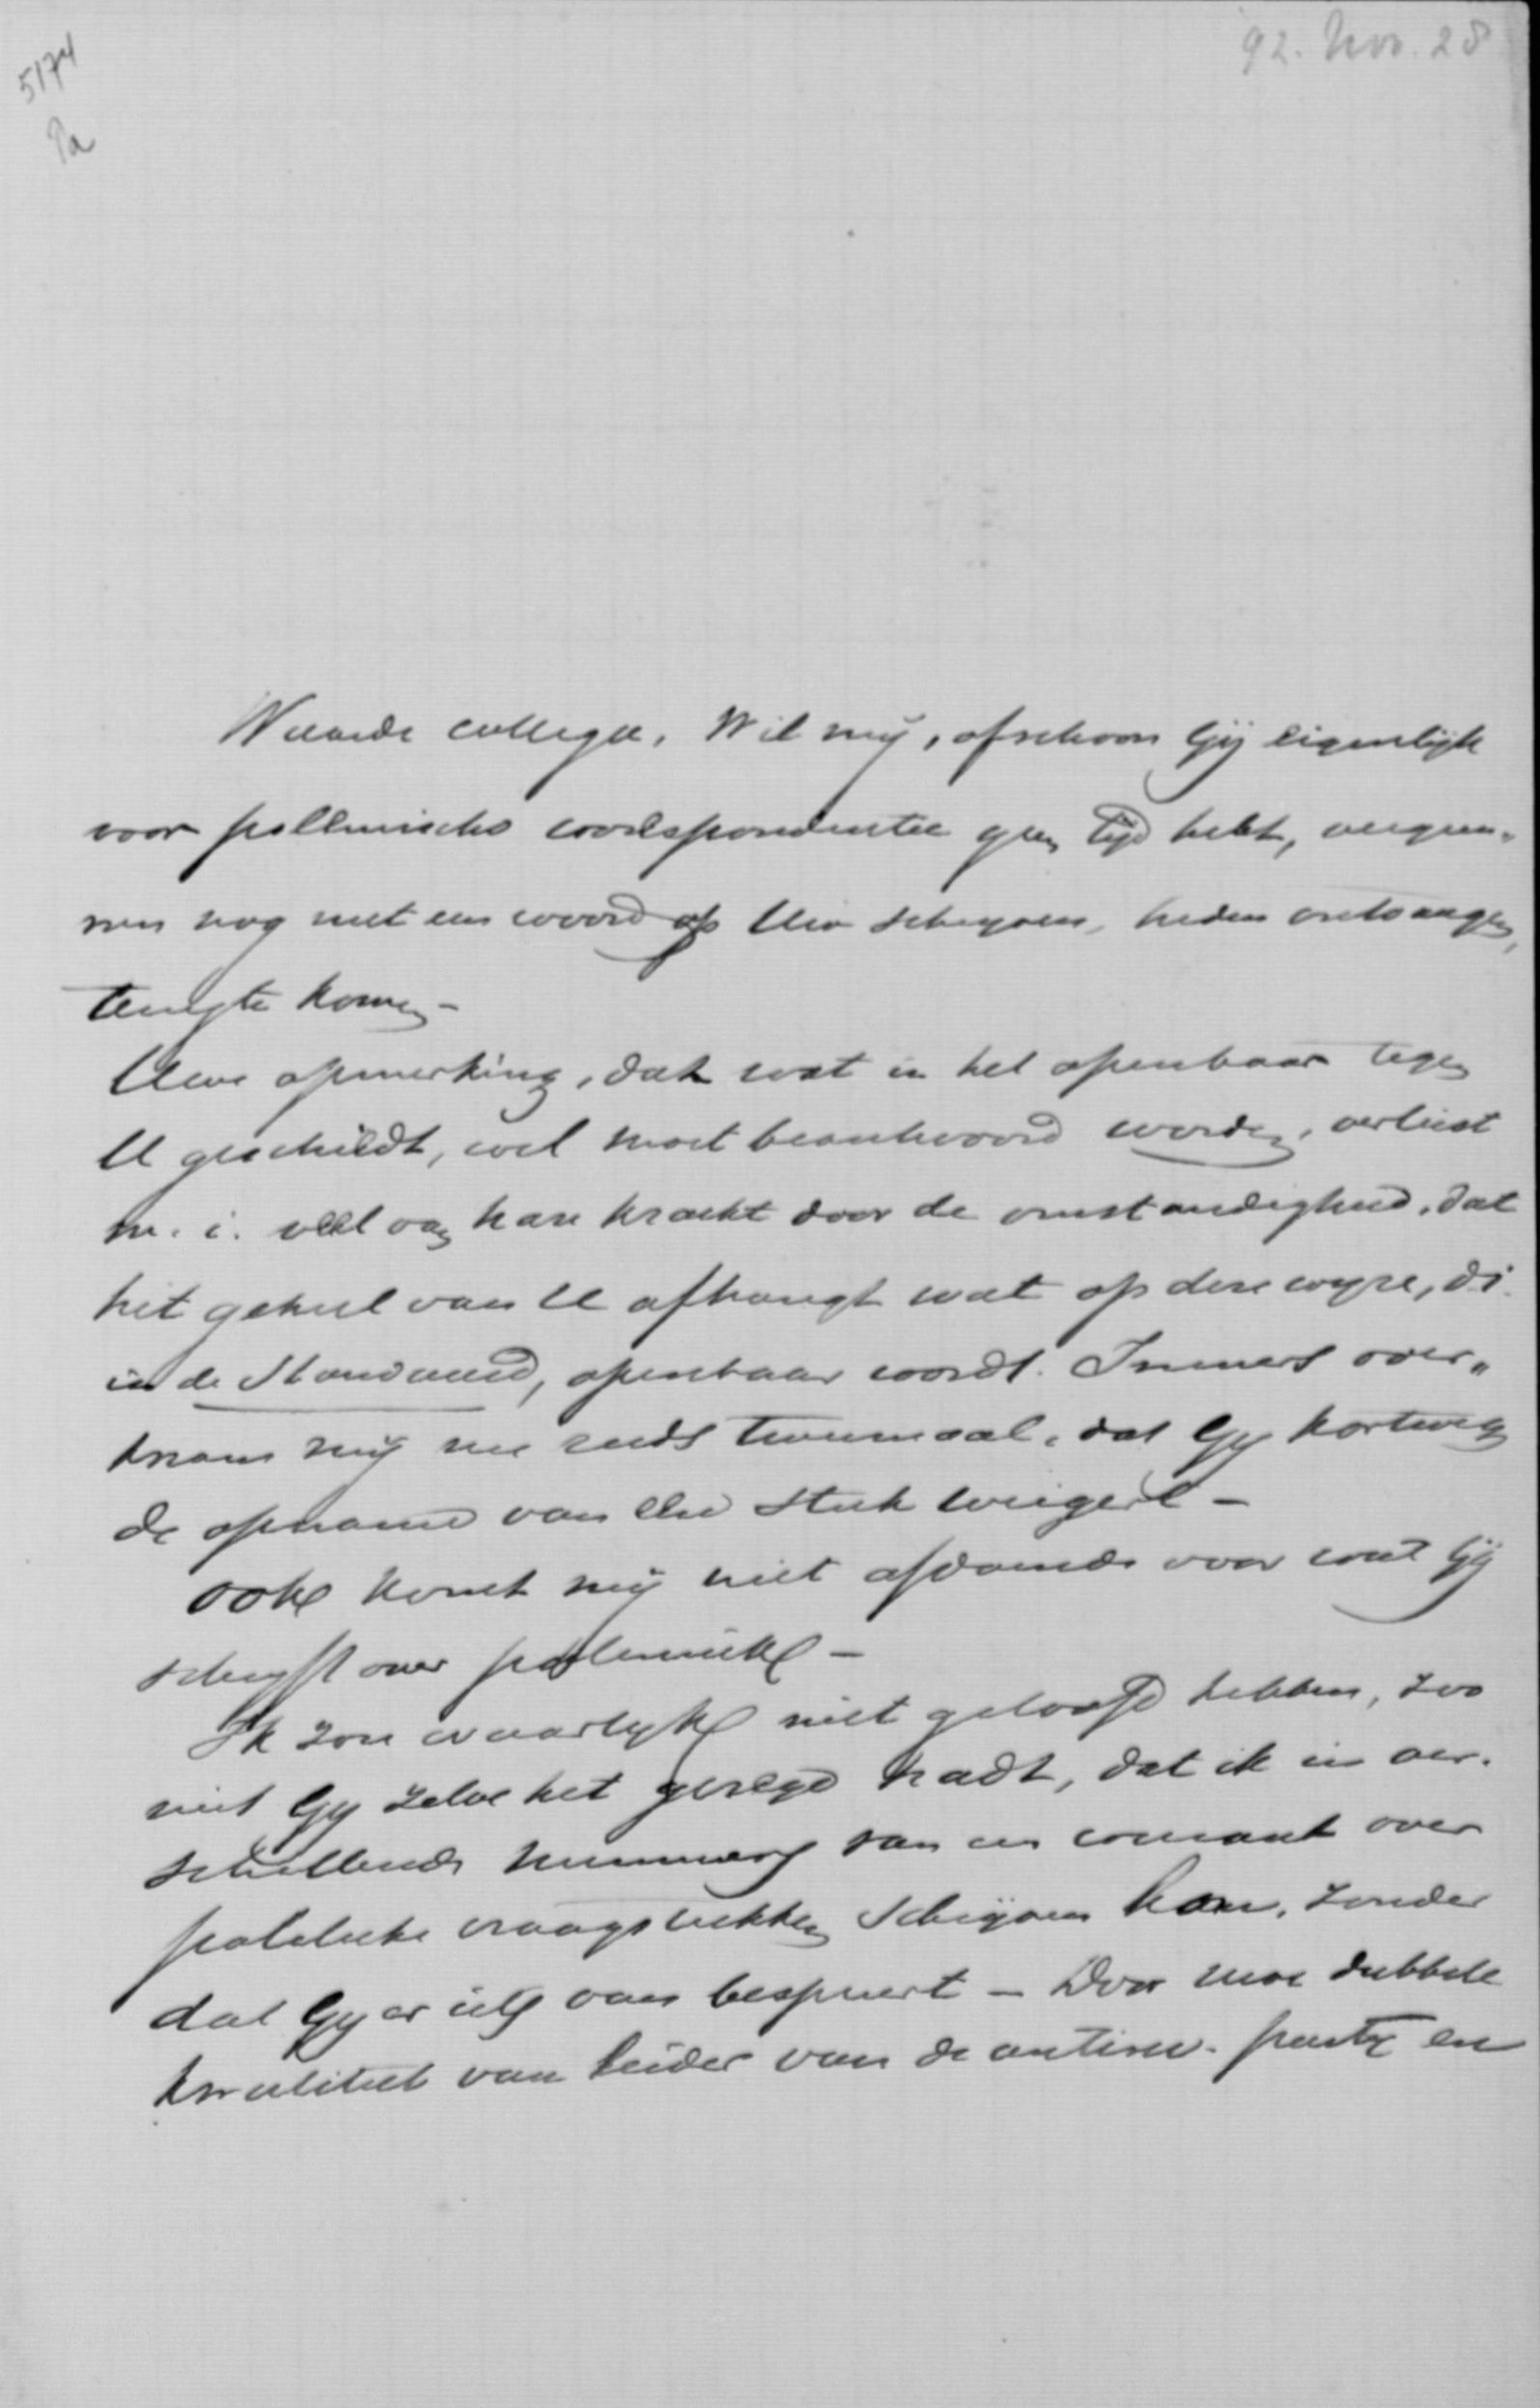 92. Nov. 28
5174
Pa
Waarde collega, Wil mij, ofschoon Gij eigenlijk
voor polemische correspondentie geen tijd hebt, vergun-
nen nog met een woord op Uw schrijven, heden ontvangen,
terug te komen -
Uwe opmerking, dat wat in het openbaar tegen
U geschiedt, wel moet beantwoord worden, verliest
m. i. veel van hare kracht door de omstandigheid, dat
het geheel van U afhangt wat op deze wyze, d.i.
in de Standaard, openbaar wordt. Immers over„
kwam mij nu reeds tweemaal, dat Gy kortweg
de opname van een stuk weigert -
Ook komt mij niet afdoende voor wat Gij
schryft over polemiek -
Ik zou waarlyk niet geloofd hebben, zoo
niet Gy zelve het gezegd hadt, dat ik in ver-
schillende nummers van een courant over
politieke vraagstukken schrijven kon, zonder
dat Gy er iets van bespeurt - Door uwe dubbele
kwaliteit van leider van de antirev. party en